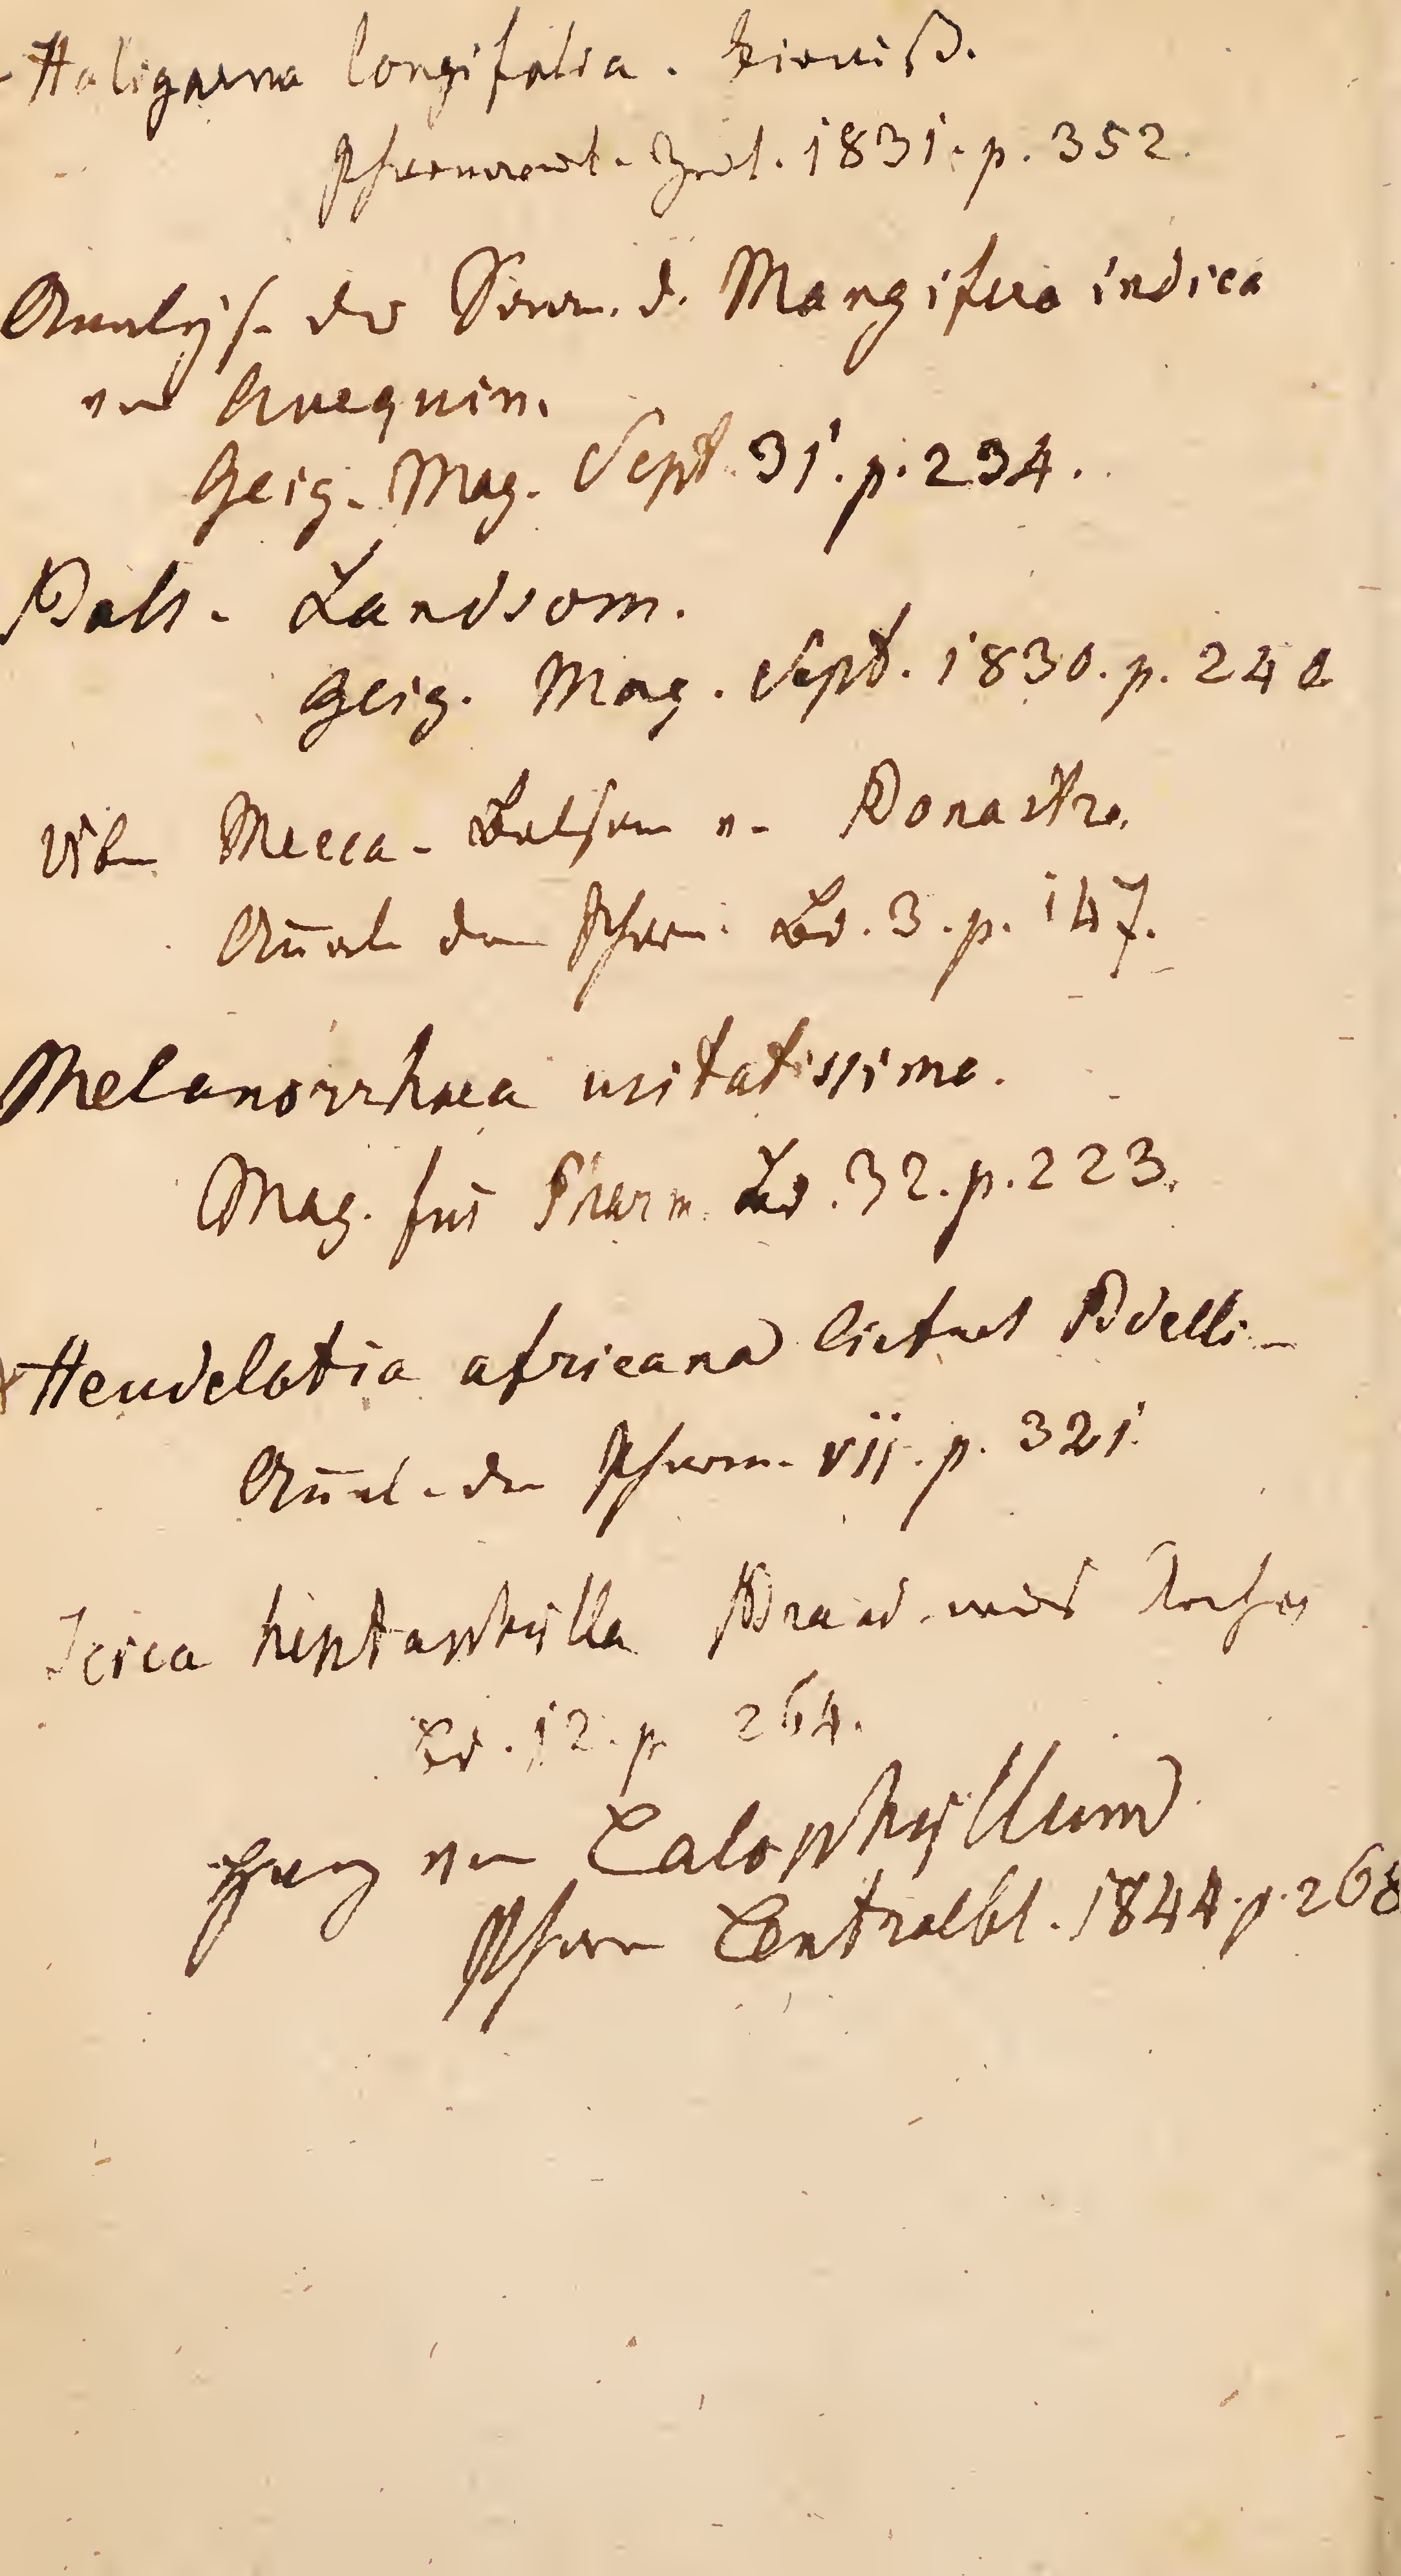 Holigarna longifolia. Firniß.
Pharmaceut. Zeit. 1831. p. 352.
Analys. der Saam. d. Mangifera indica
von Avequin.
Geig. Mag. Sept. 31. p. 234.
Bals. Landsom.
Geig. Mag. Sept. 1830. p. 240
Ueber Mecca-Balsam v. Bonastre.
Annal. der Pharm. Bd. 3. p. 147.
Melanorrhaea usitatissima.
Mag. für Pharm. Bd. 32. p. 223.
Heudelotia africana liefert Bdelli-
Annal. der Pharm. vij. p. 321.
Icica heptaphylla
Bd. 12. p. 264.
Harz von Calophyllum
Pharm Centralbl. 1844. p. 268